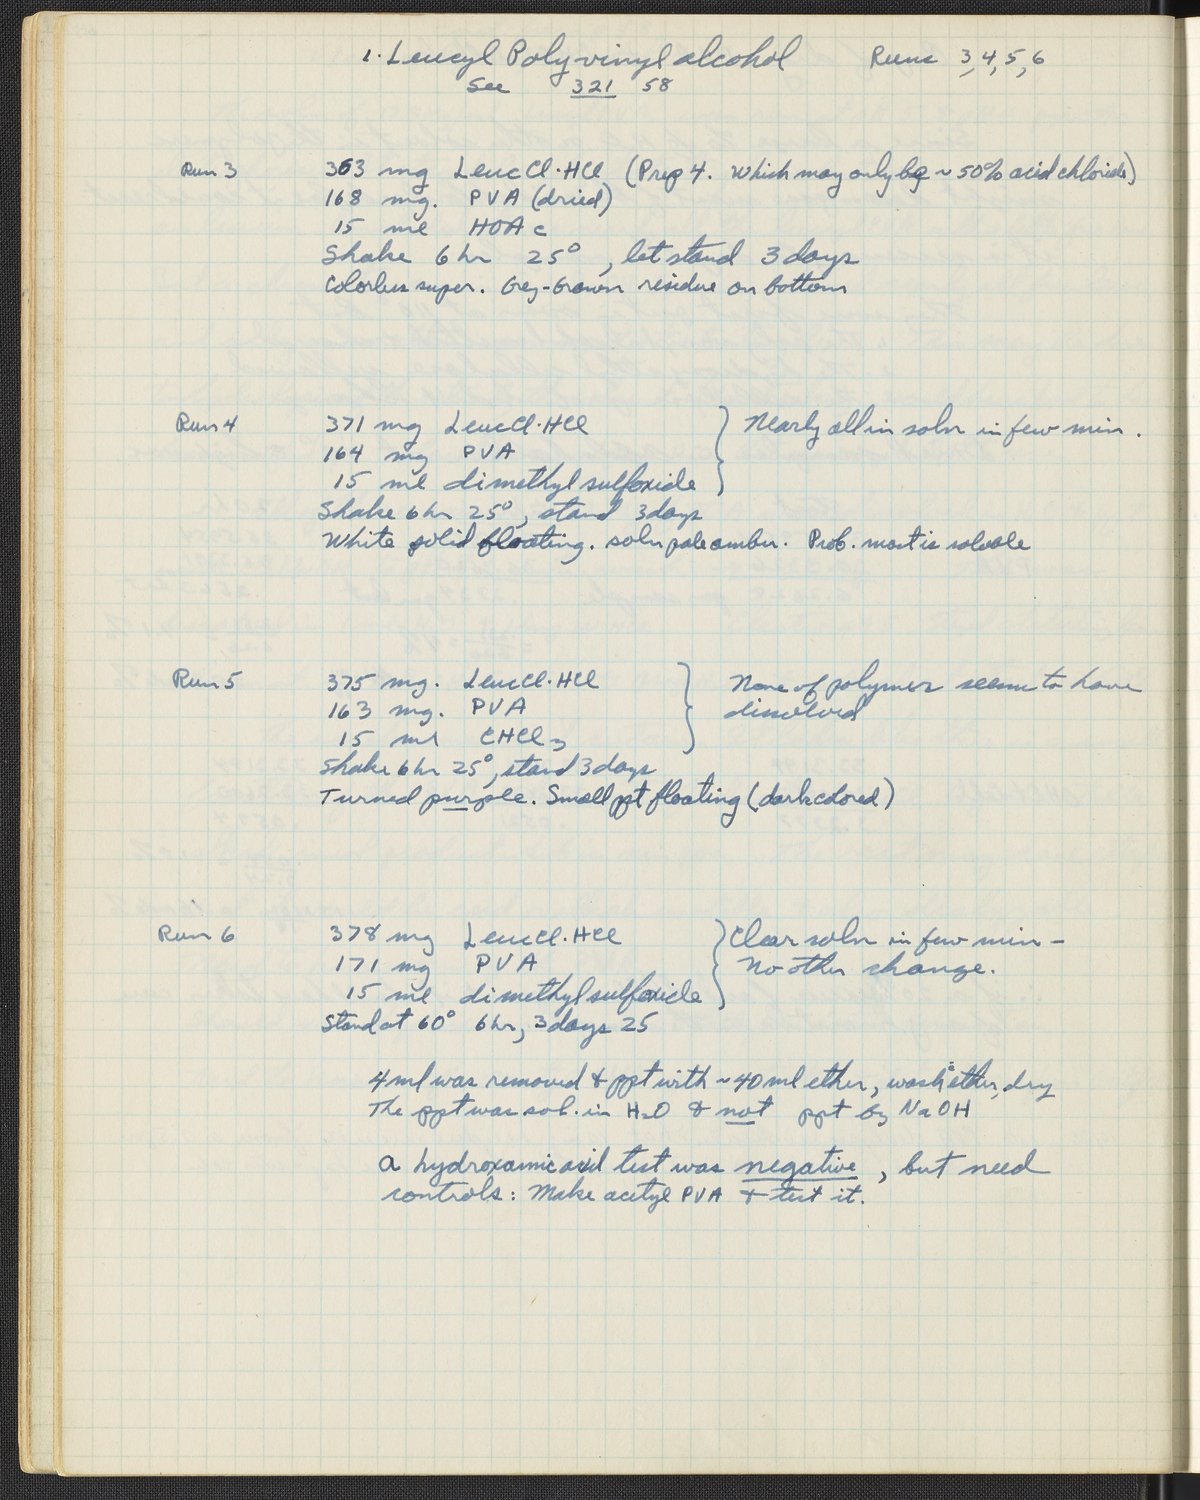 1. Leucyl Polyvinyl alcohol Runs 3, 4, 5, 6
See 321 58
Run 3 363 mg LeucCl·HCl (Prep 4. Which may only be ~50% acid chloride)
168 mg. PVA (dried)
15 ml HOAc
Shake 6 hr 25°, let stand 3 days
Colorless super. Grey-brown residue on bottom
Run 4 371 mg LeucCl·HCl } Nearly all in soln in few min.
164 mg PVA
15 ml dimethyl sulfoxide
Shake 6 hr 25°, stand 3 days
White solid floating. soln pale amber. Prob. most is soluble
Run 5 375 mg. LeucCl·HCl } None of polymer seems to have
163 mg. PVA dissolved
15 ml CHCl3
Shake 6 hr 25°, stand 3 days
Turned purple. Small ppt floating (dark colored)
Run 6 378 mg LeucCl·HCl } Clear soln in few min -
171 mg PVA No other change.
15 ml dimethyl sulfoxide
Stand at 60° 6 hr, 3 days 25
4 ml was removed & ppt with ~40 ml ether, wash ether, dry
The ppt was sol. in H2O & not ppt by NaOH
A hydroxamic acid test was negative, but need
controls: Make acetyl PVA & test it.